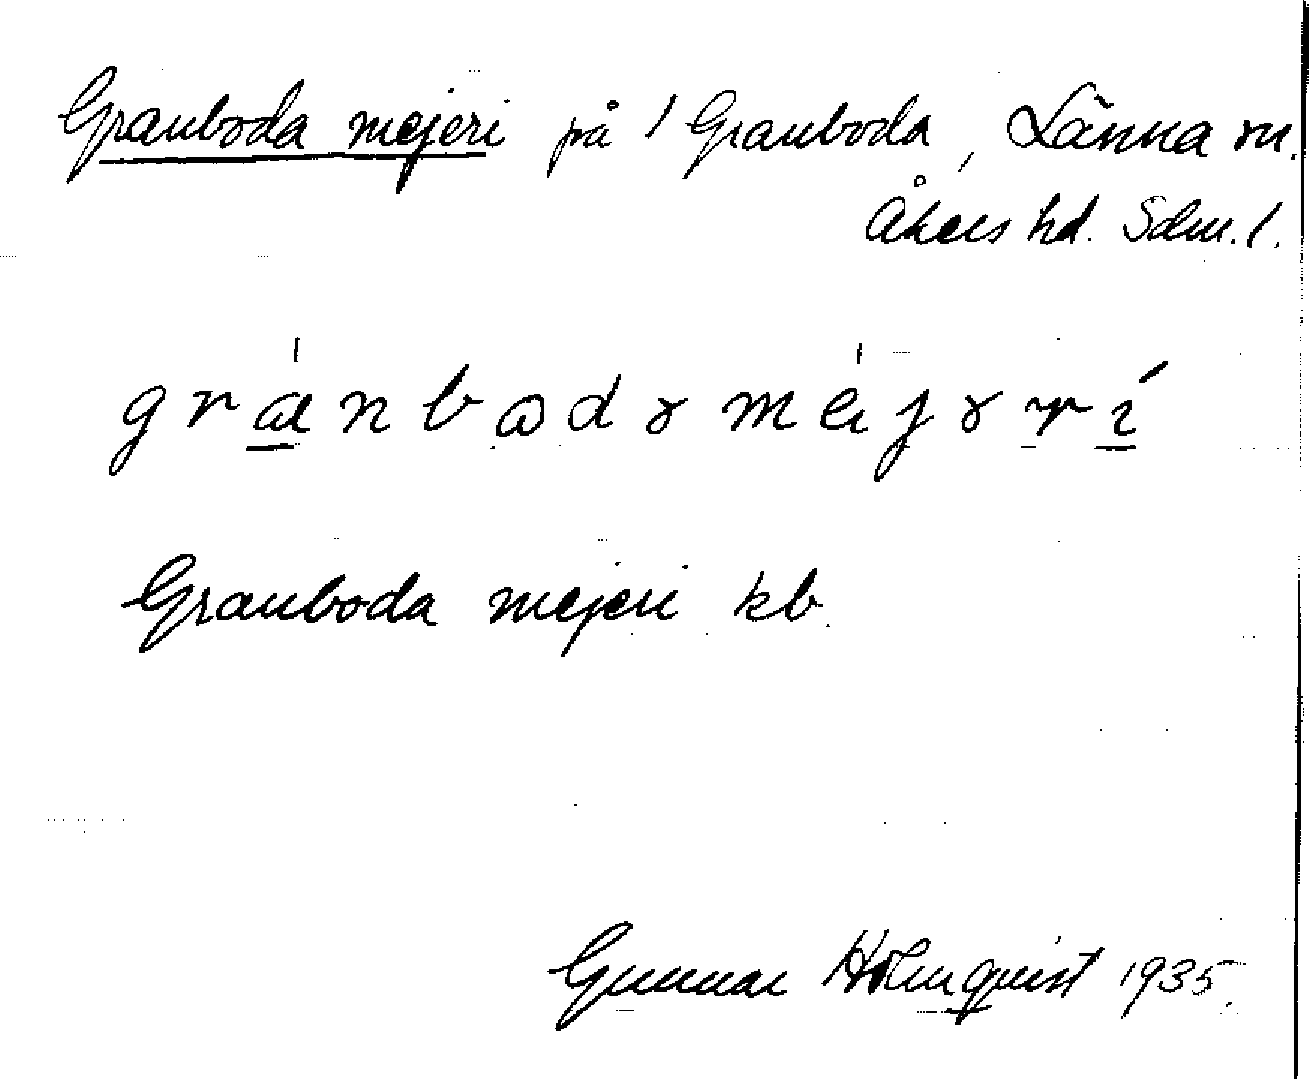 Granboda mejeri på 1 Granboda, Länna sn.
Åkers hd. Sdm. l.
Granboda mejeri kb.
Gunnar Holmquist 1935.